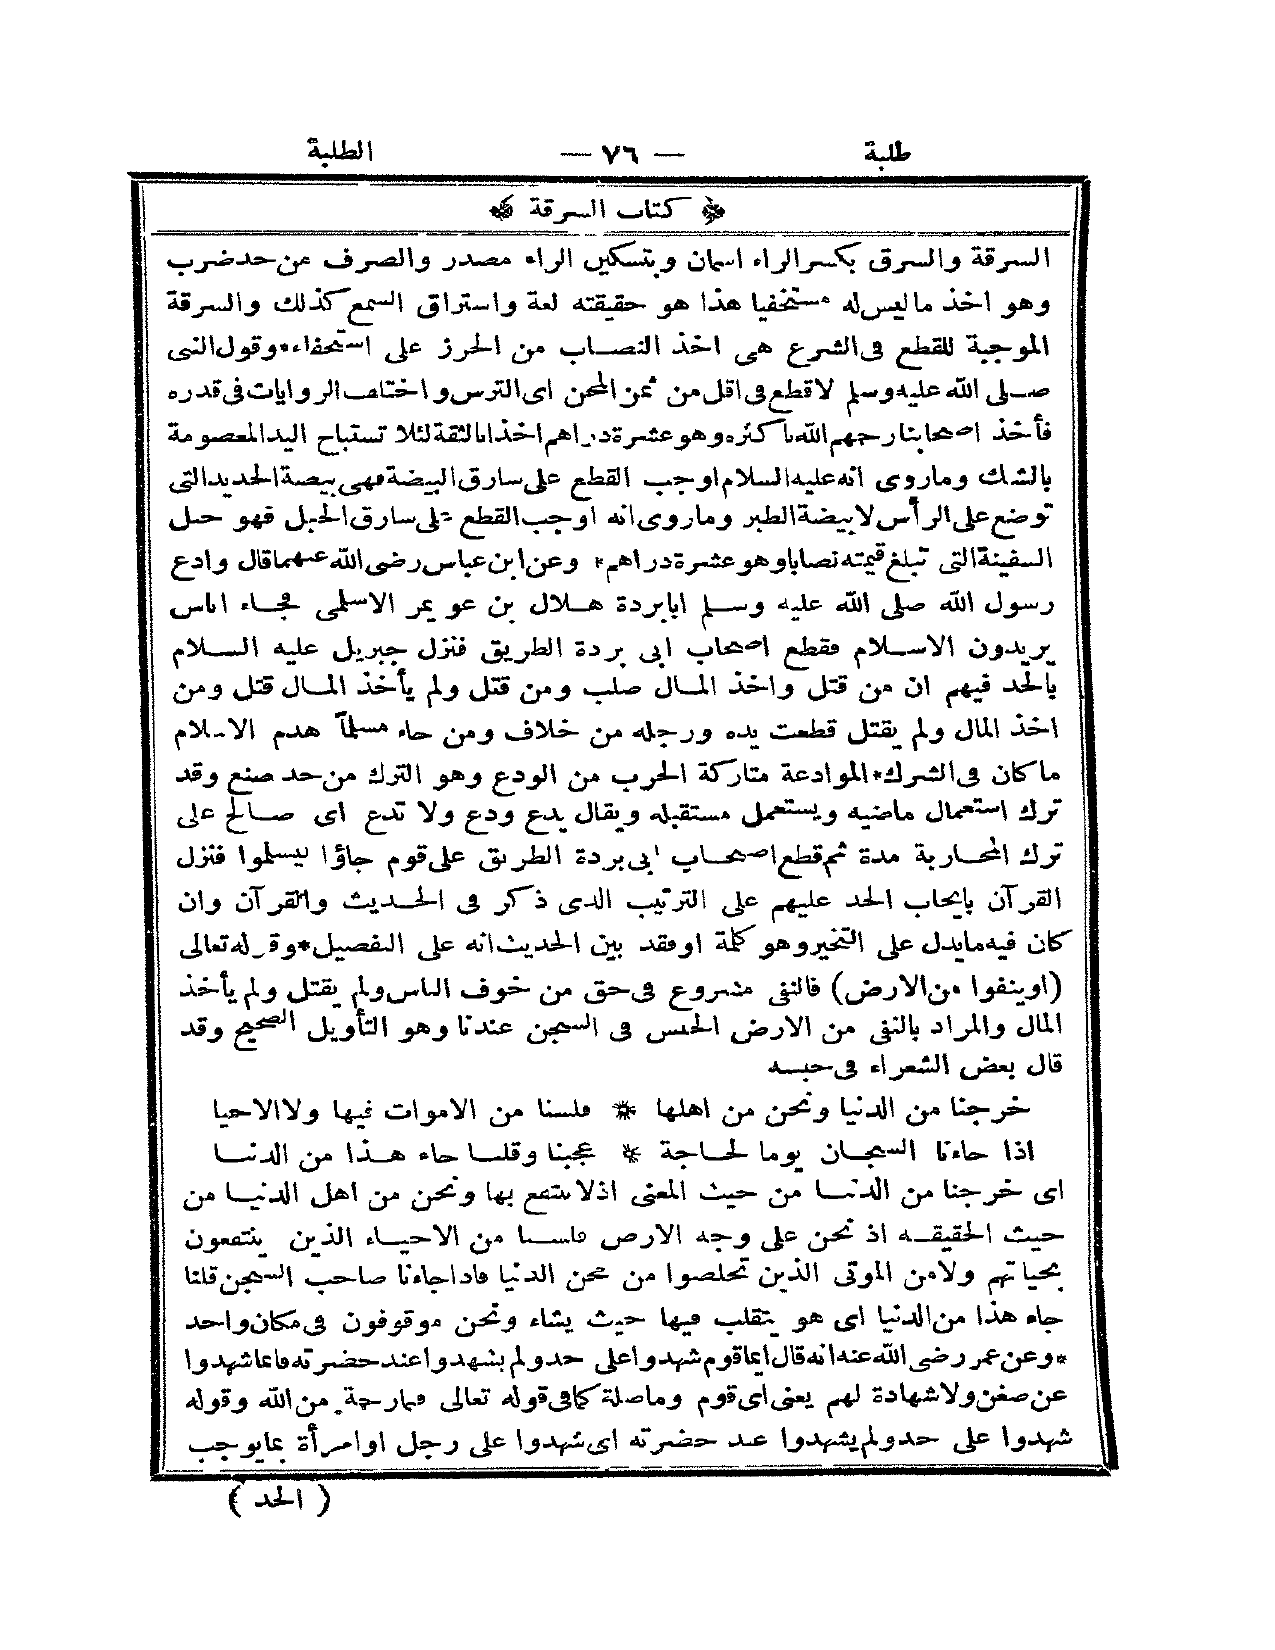 طلبة — ٧٦ — الطلبة
﴿ كتاب السرقة ﴾
السرقة والسرق بكسر الراء اسمان وبتسكين الراء مصدر والصرف من حد ضرب
وهو اخذ ما ليس له مستخفيا هذا هو حقيقته لغة واستراق السمع كذلك والسرقة
الموجبة للقطع فى الشرع هى اخذ النصاب من الحرز على استخفاء * وقول النبى
صلى الله عليه وسلم لا قطع فى اقل من ثمن المجن اى الترس واختلف الروايات فى قدره
فأخذ اصحابنا رحمهم الله باكثره وهو عشرة دراهم اخذا بالثقة لئلا تستباح اليد المعصومة
بالشك وماروى انه عليه السلام اوجب القطع على سارق البيضة فهى بيضة الحديد التى
توضع على الرأس لا بيضة الطير وماروى انه اوجب القطع على سارق الحبل فهو حبل
السفينة التى تبلغ قيمته نصابا وهو عشرة دراهم * وعن ابن عباس رضى الله عنهما قال وادع
رسول الله صلى الله عليه وسلم ابا بردة هلال بن عويمر الاسلمى فجاء اناس
يريدون الاسلام فقطع اصحاب ابى بردة الطريق فنزل جبريل عليه السلام
بالحد فيهم ان من قتل واخذ المال صلب ومن قتل ولم يأخذ المال قتل ومن
اخذ المال ولم يقتل قطعت يده ورجله من خلاف ومن جاء مسلما هدم الاسلام
ما كان فى الشرك * الموادعة متاركة الحرب من الودع وهو الترك من حد صنع وقد
ترك استعمال ماضيه ويستعمل مستقبله ويقال يدع ودع ولا تدع اى صالح على
ترك المحاربة مدة ثم قطع اصحاب ابى بردة الطريق على قوم جاؤا ليسلموا فنزل
القرآن بايجاب الحد عليهم على الترتيب الذى ذكر فى الحديث والقرآن وان
كان فيه ما يدل على التخيير وهو كلمة او فقد بين الحديث انه على التفصيل * وقوله تعالى
(او ينفوا من الارض) فالنفى مشروع فى حق من خوف الناس ولم يقتل ولم يأخذ
المال والمراد بالنفى من الارض الحبس فى السجن عندنا وهو التأويل الصحيح وقد
قال بعض الشعراء فى حبسه
خرجنا من الدنيا ونحن من اهلها * فلسنا من الاموات فيها ولا الاحيا
اذا جاءنا السجان يوما لحاجة * عجبنا وقلنا جاء هذا من الدنيا
اى خرجنا من الدنيا من حيث المعنى اذ لا ننتفع بها ونحن من اهل الدنيا من
حيث الحقيقة اذ نحن على وجه الارض فلسنا من الاحياء الذين ينتفعون
بحياتهم ولا من الموتى الذين تخلصوا من محن الدنيا فاذا جاءنا صاحب السجن قلنا
جاء هذا من الدنيا اى هو يتقلب فيها حيث يشاء ونحن موقوفون فى مكان واحد
* وعن عمر رضى الله عنه انه قال ايما قوم شهدوا على حد ولم يشهدوا عند حضرته فانما شهدوا
عن ضغن ولا شهادة لهم يعنى اى قوم وما صلة كما فى قوله تعالى فبما رحمة من الله وقوله
شهدوا على حد ولم يشهدوا عند حضرته اى شهدوا على رجل او امرأة بما يوجب
( الحد )